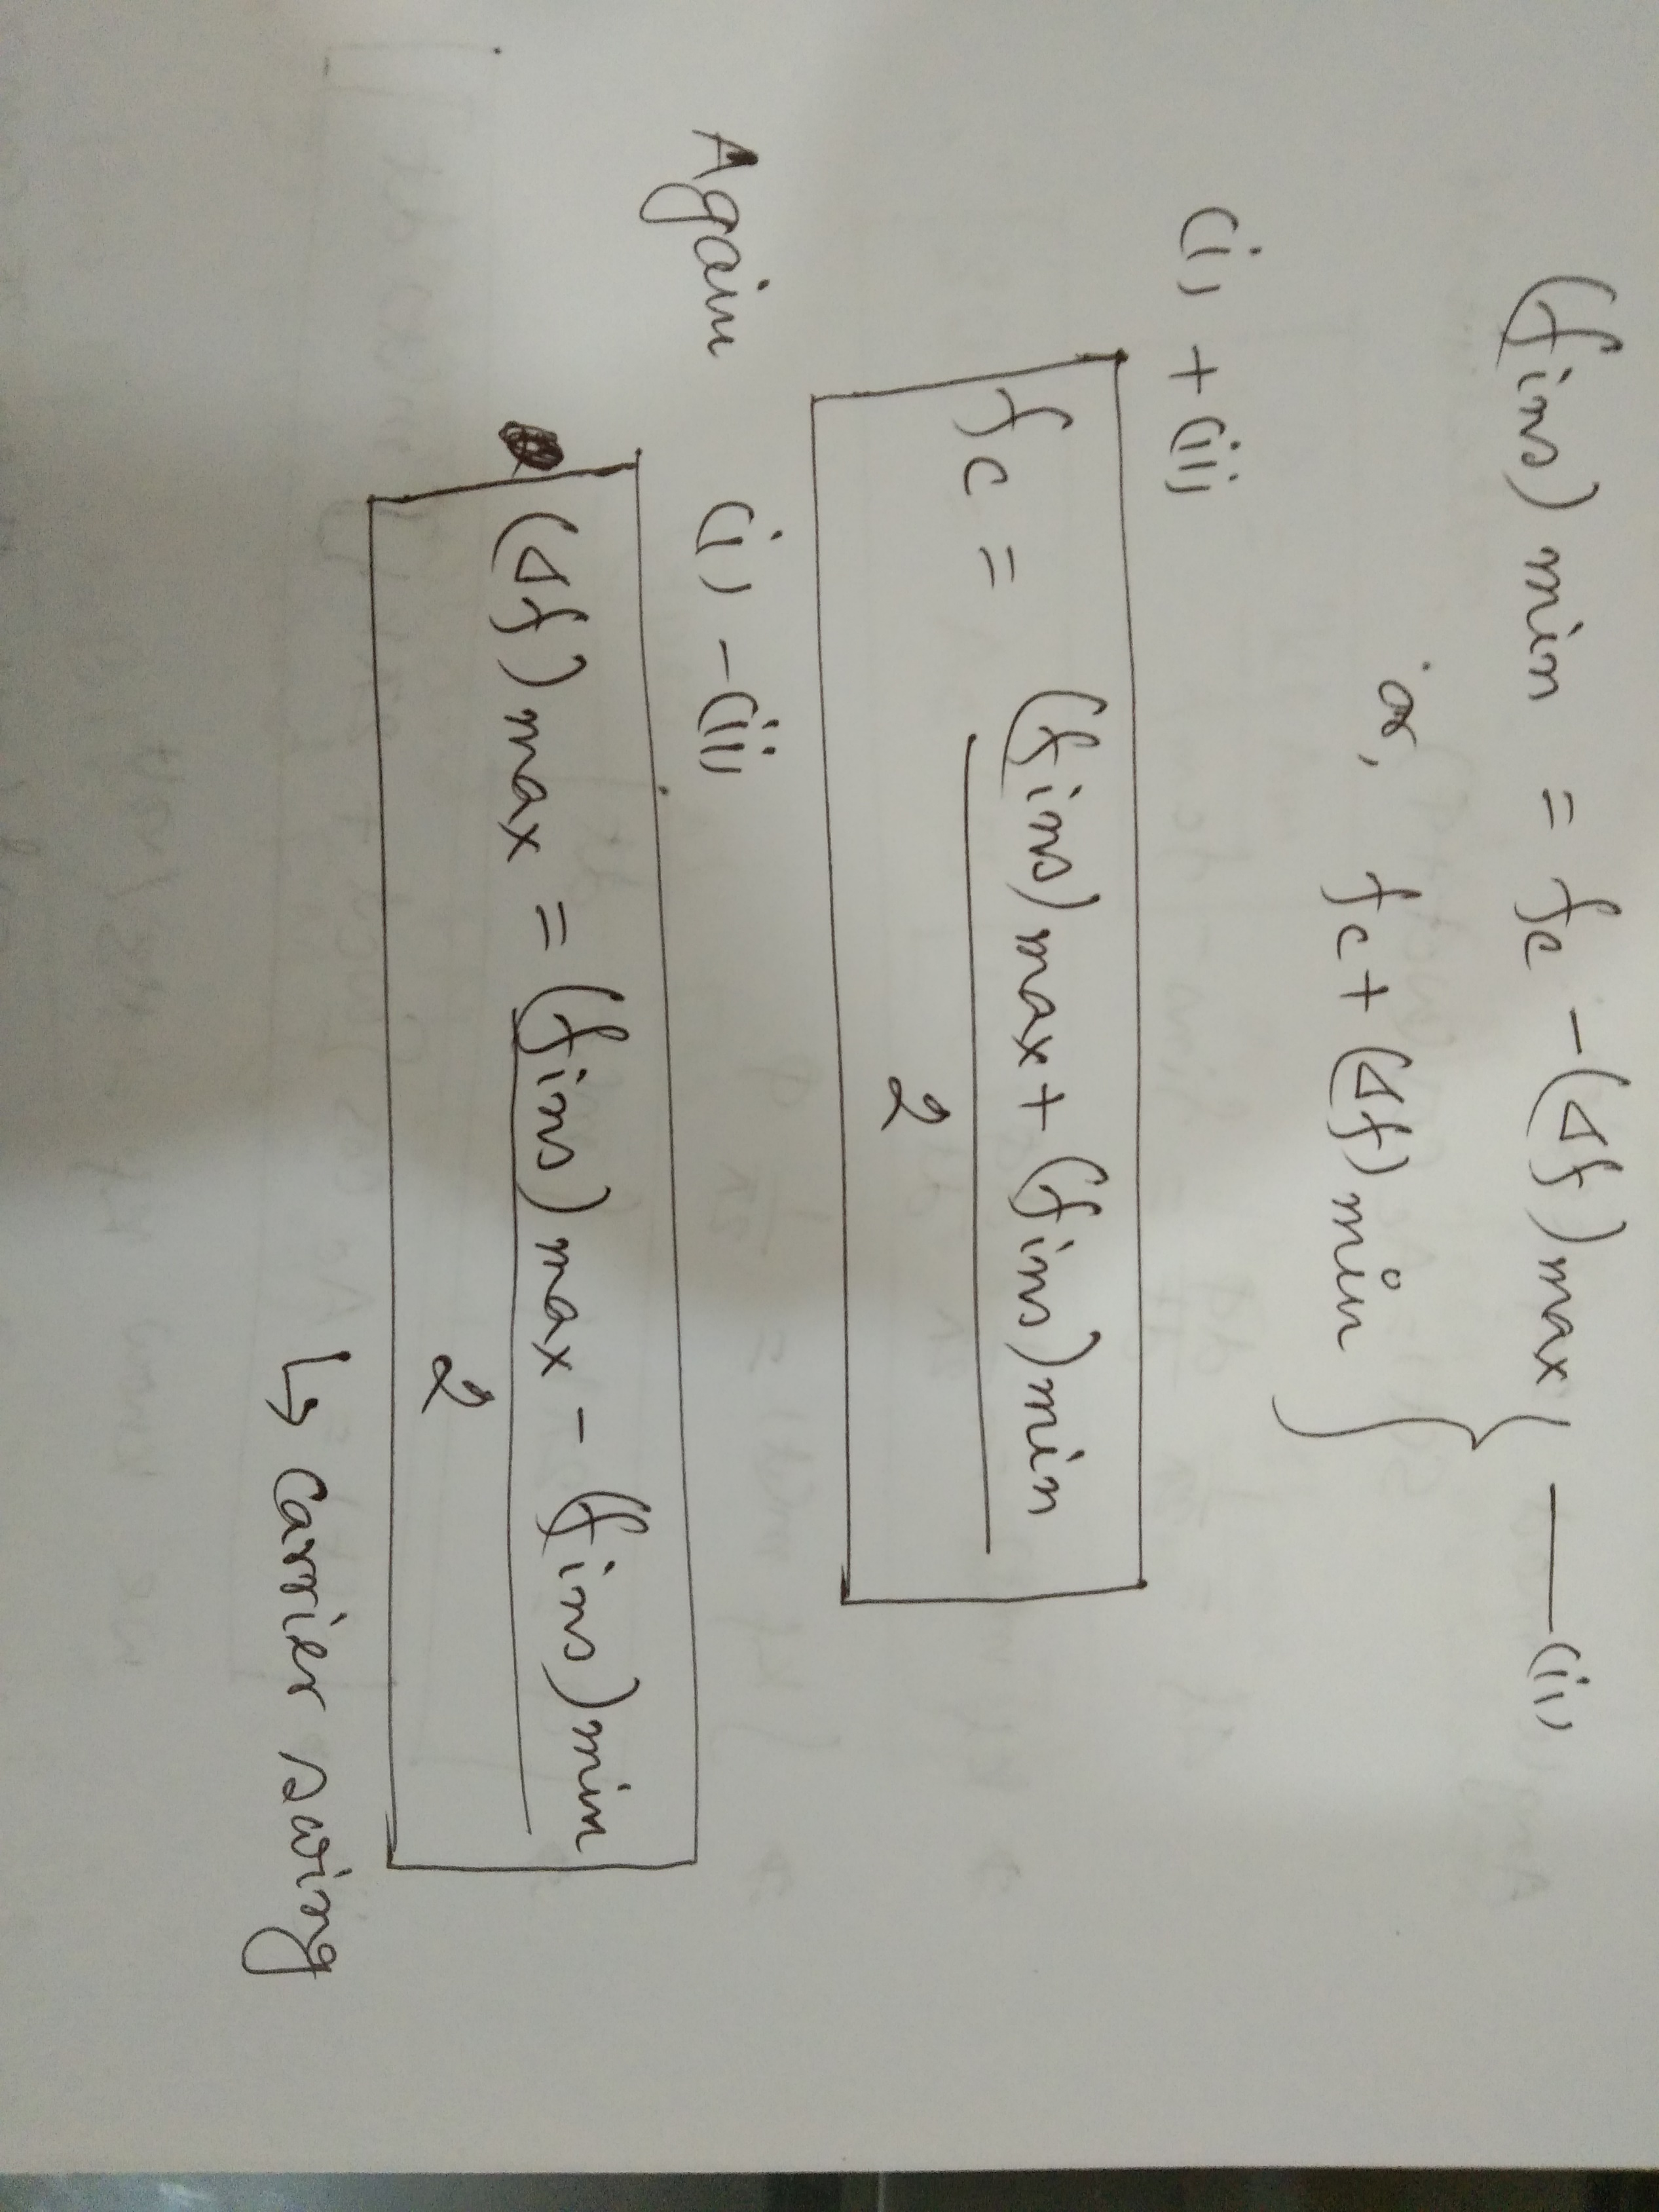 (fins) min = fc - (Δf) max ——(ii)
or, fc + (Δf) min
(i) + (ii)
fc = (fins) max + (fins) min
2
Again (i) - (ii)
(Δf) max = (fins) max - (fins) min
2
↳ carrier swing